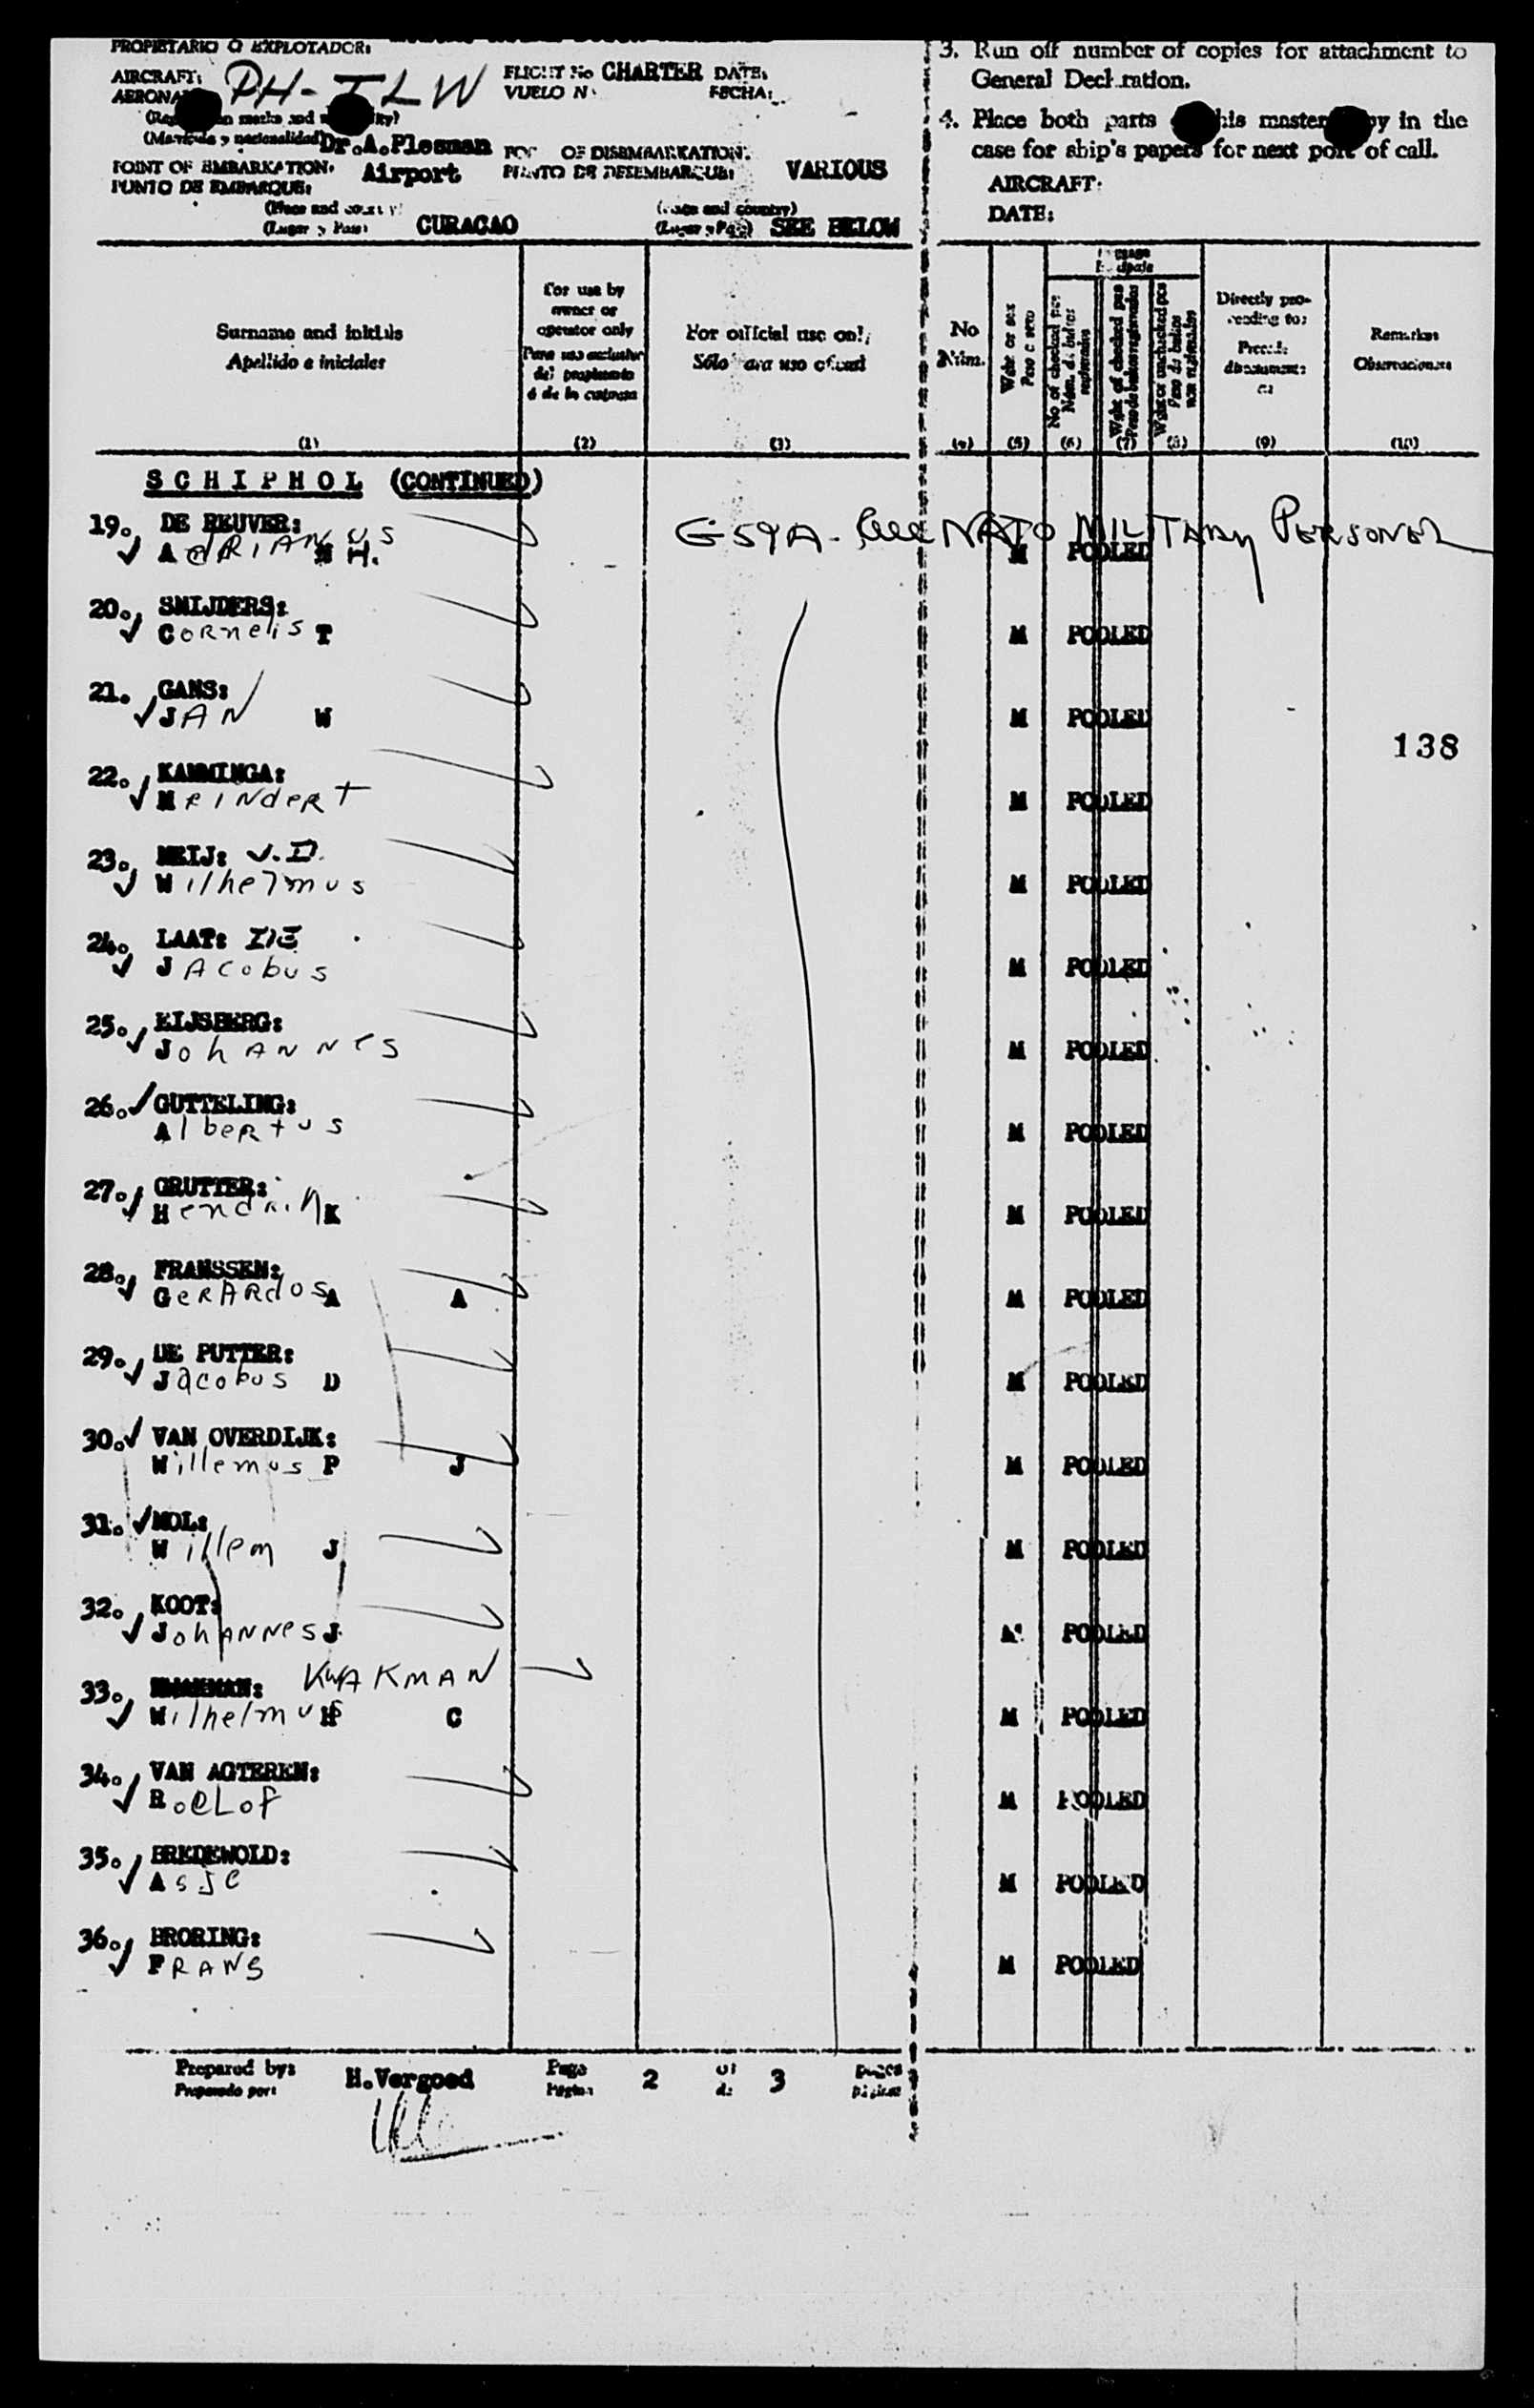 PROPIETARIO O EXPLOTADOR:
AIRCRAFT: PH-TLW FLIGHT No CHARTER DATE:
VUELO N FECHA:
(Matricula y nacionalidad) Dr.A.Plesman
POINT OF EMBARKATION: Airport OF DISEMBARKATION: VARIOUS
PUNTO DE EMBARQUE: PUNTO DE DESEMBARQUE:
(Place and country) (Place and country)
(Lugar y Pais) CURACAO (Lugar y Pais) SEE BELOW
3. Run off number of copies for attachment to
General Declaration.
4. Place both parts this master in the
case for ship's papers for next port of call.
AIRCRAFT:
DATE:
Surname and initials
Apellido e iniciales
(1)
For use by
owner or
operator only
Para uso exclusivo
del propietario
ó de la
(2)
For official use only
Sólo para uso oficial
(3)
No
Núm.
(4)
(5)
No of checked pcs
(6)
Wght of checked pcs
(7)
Wght or unchecked pcs
(8)
Directly pro-
ceeding to:
(9)
Remarks
Observaciones
(10)
SCHIPHOL (CONTINUED)
19. DE REUVER: G59A- NATO MILITARY PERSONEL
AdRIANUS H. M POOLED
20. SNIJDERS:
CORNelis T M POOLED
21. GANS:
JAN W M POOLED
138
22. KAMMINGA:
MeiNdeRt M POOLED
23. MEIJ: V.D.
Wilhelmus M POOLED
24. LAAT: DE
JAcobus M POOLED
25. EIJSBERG:
JohANNes M POOLED
26. GUTTELING:
AlbeRtus M POOLED
27. GRUTTER:
Hendrik K M POOLED
28. FRANSSEN:
GeRARdos A A M POOLED
29. DE PUTTER:
Jacobus D M POOLED
30. VAN OVERDIJK:
Willemus P J M POOLED
31. MOL:
Willem J M POOLED
32. KOOT:
JohANNes J. M POOLED
33. KWAKMAN
Wilhelmus C M POOLED
34. VAN AGTEREN:
RoeLof M POOLED
35. BREDEWOLD:
AsJe M POOLED
36. BRORING:
FRANS M POOLED
Prepared by: H.Vergoed Page 2 of 3 pages
Preparado por: Página de páginas